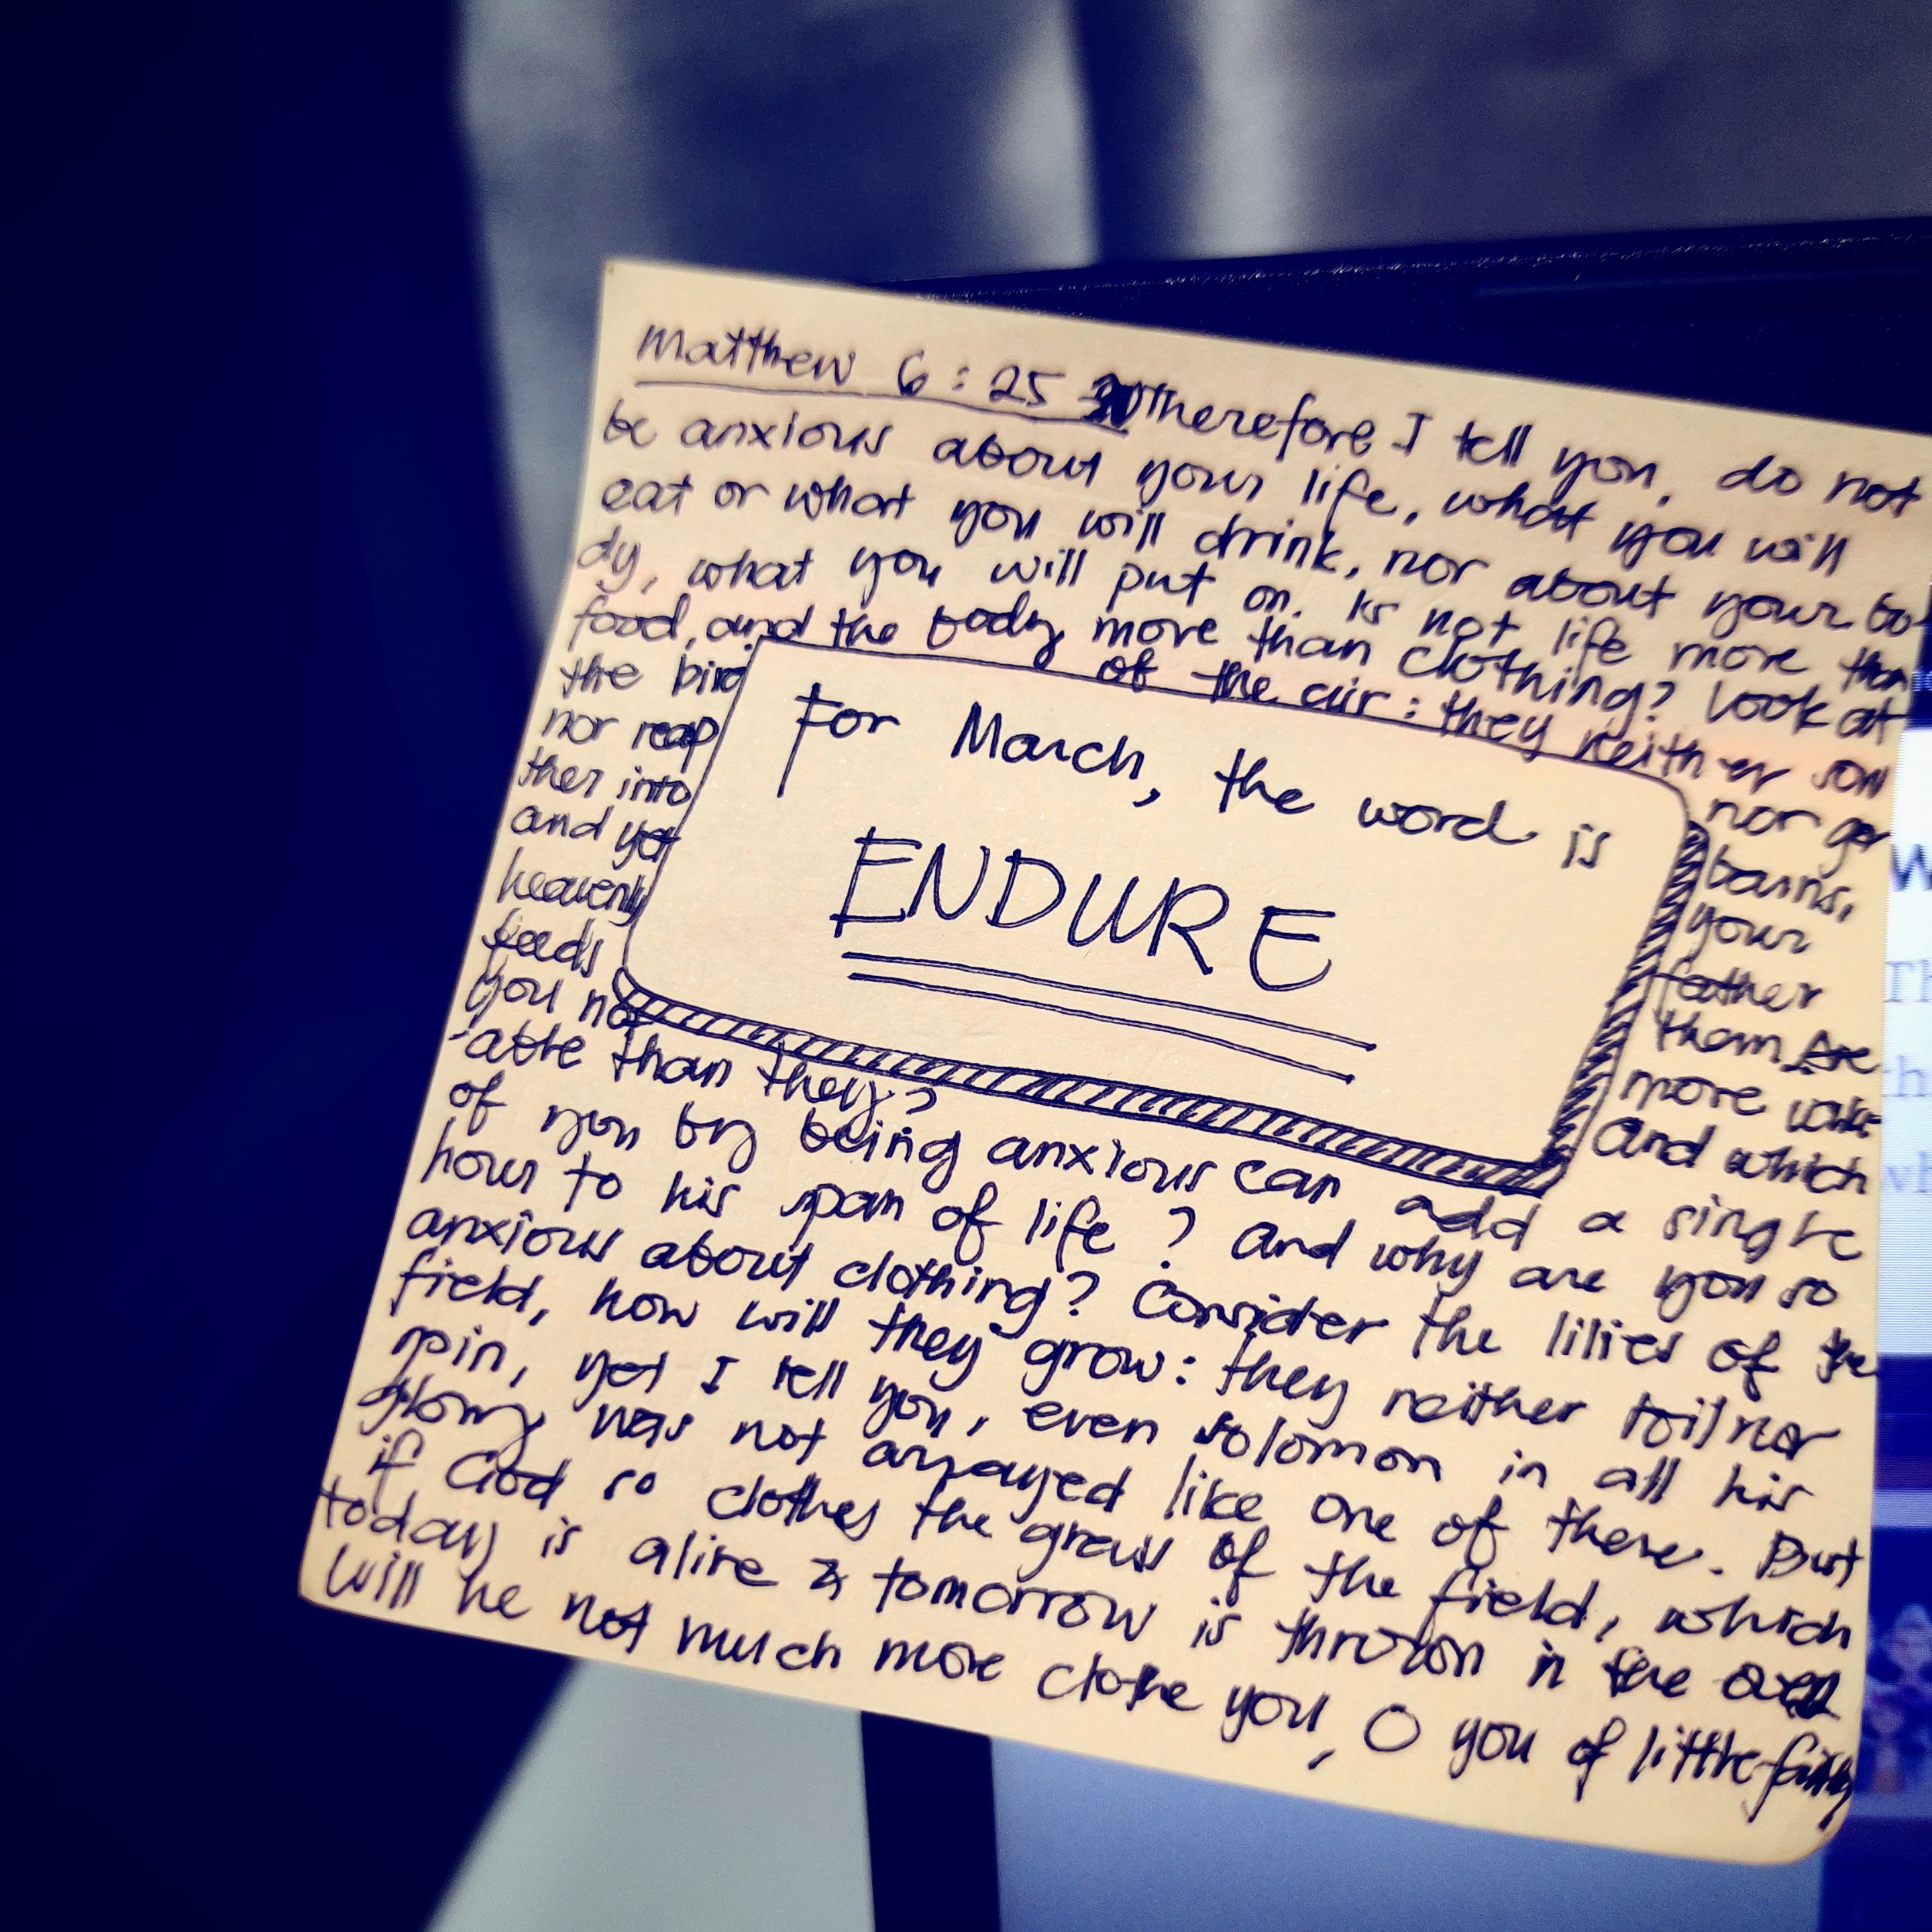 Matthew 6:25 Therefore I tell you, do not
be anxious about your life, what you will
eat or what you will drink, nor about your bo-
dy, what you will put on. Is not life more than
food, and the body more than clothing? Look at
the bird of the air: they neither sow
nor reap nor ga
ther into barns,
and yet your
heavenly father
feeds them. Are
you not more valu-
able than they? And which
of you by being anxious can add a single
hour to his span of life? And why are you so
anxious about clothing? Consider the lilies of the
field, how will they grow: they neither toil nor
spin, yet I tell you, even solomon in all his
glory was not arrayed like one of these. But
if God so clothes the grass of the field, which
today is alive & tomorrow is thrown in the oven
will he not much more clothe you, O you of little faith
For March, the word is
ENDURE